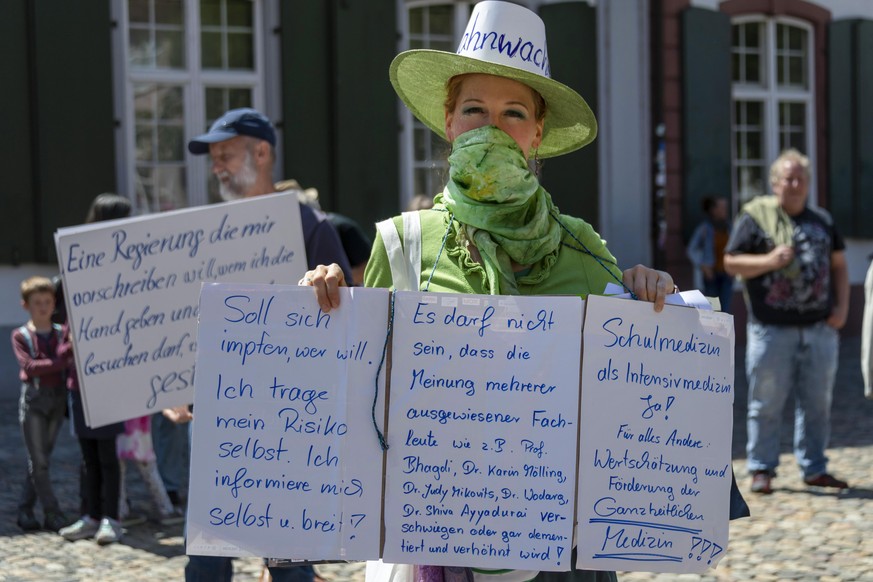 ahnwach
Eine Regierung die mir
vorschreiben will, wem ich die
Hand geben und
besuchen darf,
Soll sich
impfen, wer will.
Ich trage
mein Risiko
selbst. Ich
informiere mich
selbst u. breit!
Es darf nicht
sein, dass die
Meinung mehrerer
ausgewiesener Fach-
leute wie z.B. Prof.
Bhagdi, Dr. Karin Mölling,
Dr. Judy Mikovits, Dr. Wodarg,
Dr. Shiva Ayyadurai ver-
schwiegen oder gar demen-
tiert und verhöhnt wird!
Schulmedizin
als Intensivmedizin
Ja!
Für alles Andere:
Wertschätzung und
Förderung der
Ganzheitlichen
Medizin!!!